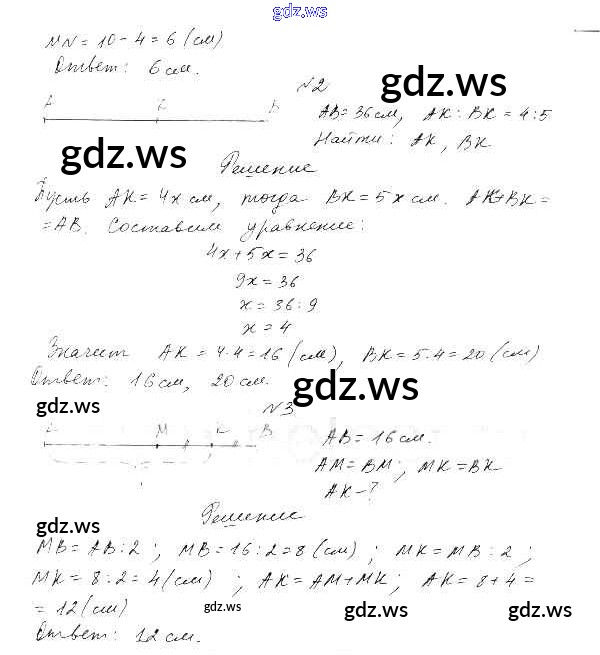 gdz.ws
MN = 10 - 4 = 6 (см)
Ответ: 6 см.
№2
gdz.ws
A K B
AB = 36 см, AK : BK = 4 : 5
Найти: AK, BK
gdz.ws
Решение
Пусть AK = 4x см, тогда BK = 5x см. AK + BK =
= AB. Составим уравнение:
4x + 5x = 36
9x = 36
x = 36 : 9
x = 4
Значит AK = 4·4 = 16 (см), BK = 5·4 = 20 (см)
Ответ: 16 см, 20 см.
gdz.ws
gdz.ws
№3
M K B
AB = 16 см.
AM = BM; MK = BK
AK - ?
gdz.ws
Решение
MB = AB : 2; MB = 16 : 2 = 8 (см); MK = MB : 2;
MK = 8 : 2 = 4 (см); AK = AM + MK; AK = 8 + 4 =
= 12 (см)
gdz.ws gdz.ws gdz.ws
Ответ: 12 см.